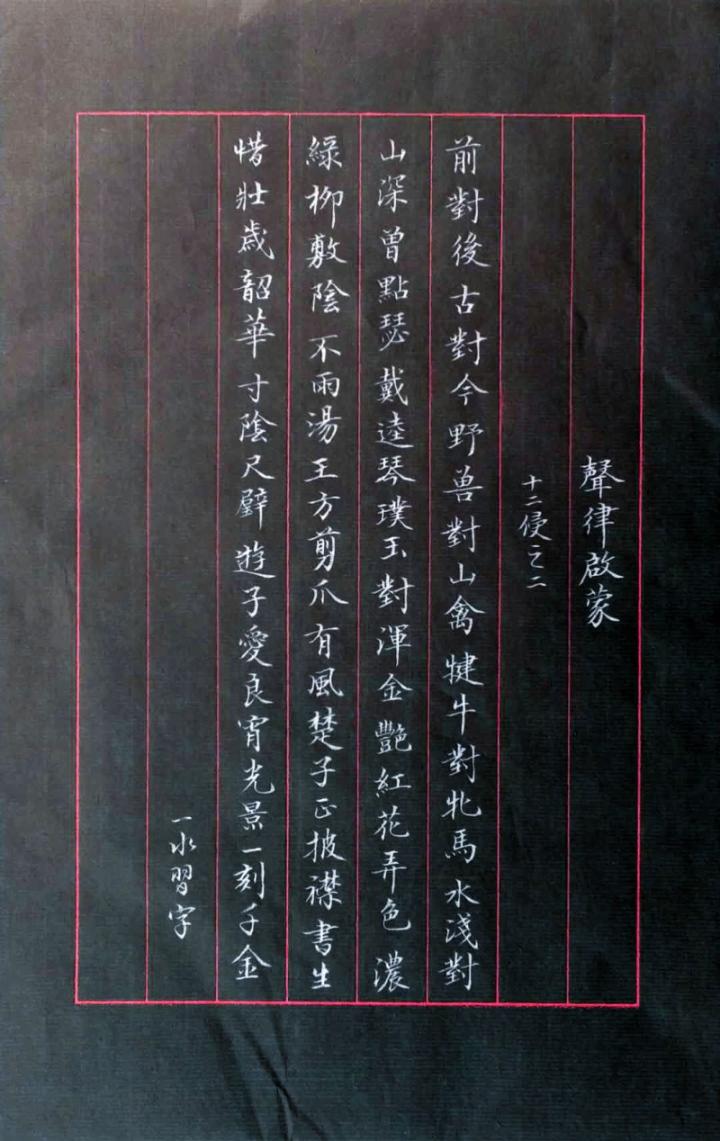 聲律啟蒙
十二侵之二
前對後古對今野兽對山禽犍牛對牝馬水淺對
山深曾點瑟戴逵琴璞玉對渾金艷紅花弄色濃
綠柳敷陰不雨湯王方剪爪有風楚子正披襟書生
惜壯歲韶華寸陰尺璧遊子愛良宵光景一刻千金
一水習字